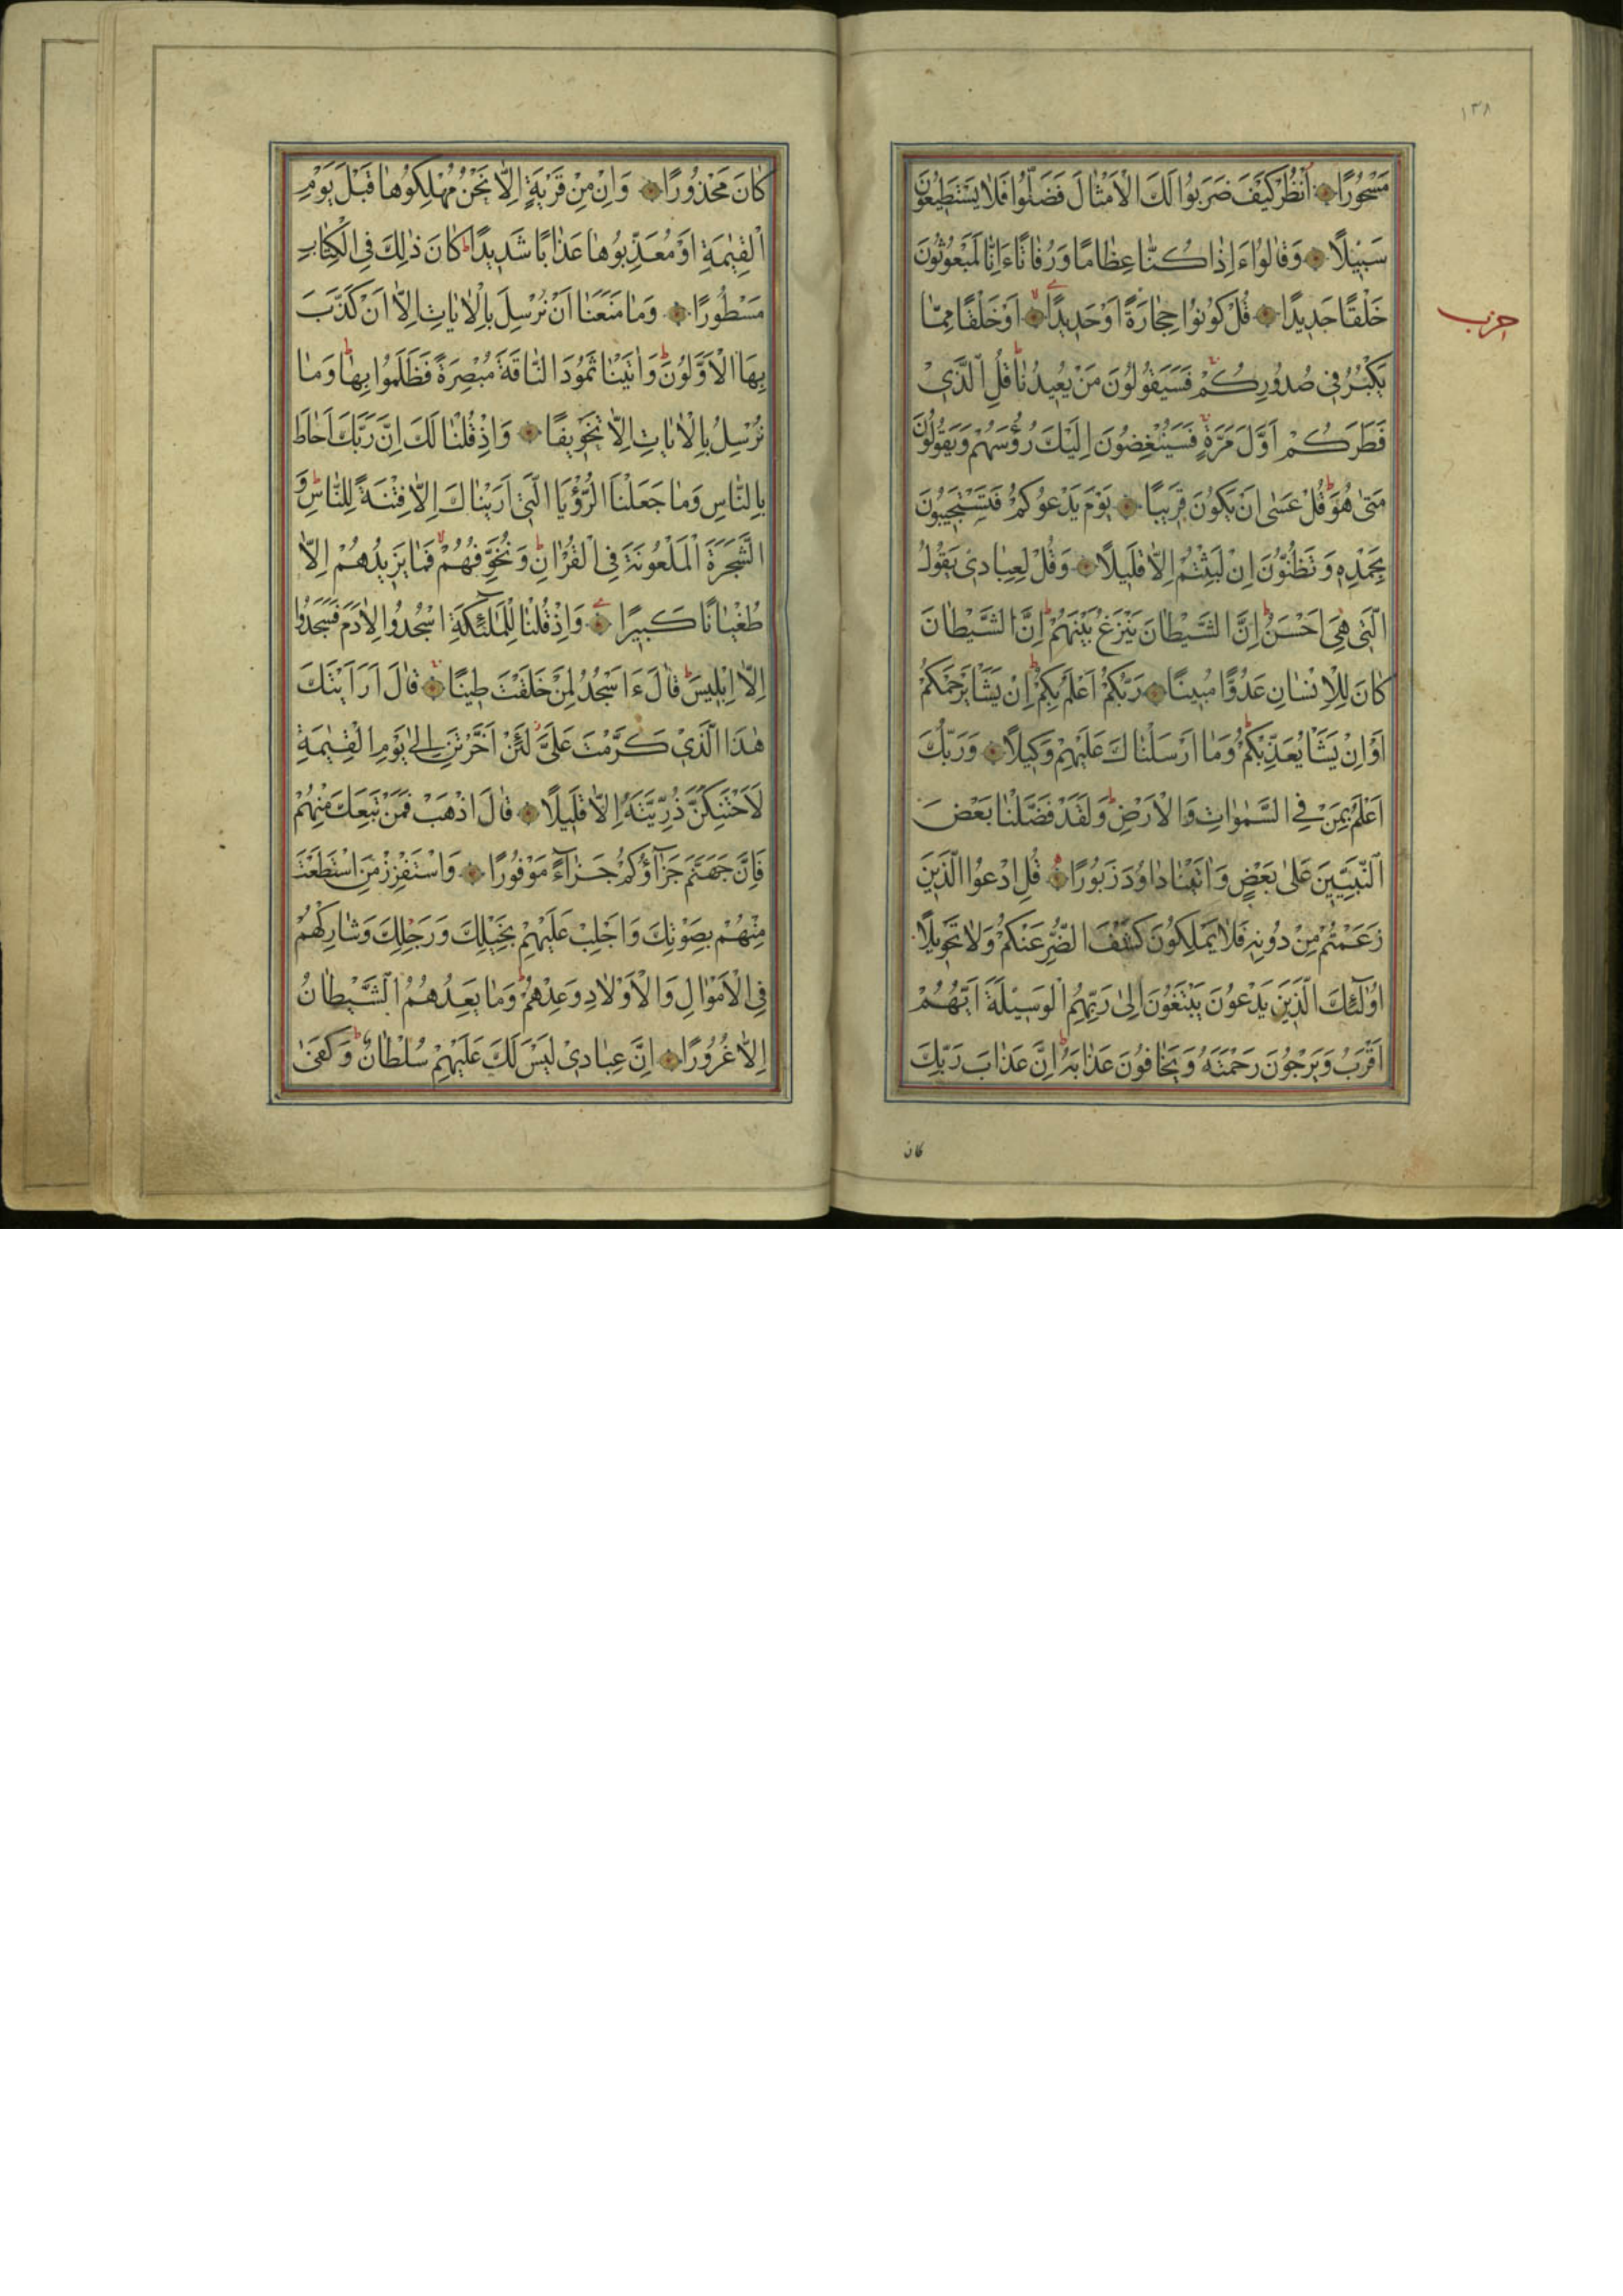 ١٣٨
مَسْحُورًا اُنْظُرْ كَيْفَ ضَرَبُوا لَكَ الْاَمْثَالَ فَضَلُّوا فَلَا يَسْتَطِيعُونَ
سَبِيلًا وَقَالُوا ءَاِذَا كُنَّا عِظَامًا وَرُفَاتًا ءَاِنَّا لَمَبْعُوثُونَ
خَلْقًا جَدِيدًا قُلْ كُونُوا حِجَارَةً اَوْ حَدِيدًا اَوْ خَلْقًا مِمَّا
حزب
يَكْبُرُ فِي صُدُورِكُمْ فَسَيَقُولُونَ مَنْ يُعِيدُنَا قُلِ الَّذِي
فَطَرَكُمْ اَوَّلَ مَرَّةٍ فَسَيُنْغِضُونَ اِلَيْكَ رُؤُسَهُمْ وَيَقُولُونَ
مَتٰى هُوَ قُلْ عَسٰى اَنْ يَكُونَ قَرِيبًا يَوْمَ يَدْعُوكُمْ فَتَسْتَجِيبُونَ
بِحَمْدِهٖ وَتَظُنُّونَ اِنْ لَبِثْتُمْ اِلَّا قَلِيلًا وَقُلْ لِعِبَادِي يَقُولُوا
الَّتِي هِيَ اَحْسَنُ اِنَّ الشَّيْطَانَ يَنْزَغُ بَيْنَهُمْ اِنَّ الشَّيْطَانَ
كَانَ لِلْاِنْسَانِ عَدُوًّا مُبِينًا رَبُّكُمْ اَعْلَمُ بِكُمْ اِنْ يَشَأْ يَرْحَمْكُمْ
اَوْ اِنْ يَشَأْ يُعَذِّبْكُمْ وَمَا اَرْسَلْنَاكَ عَلَيْهِمْ وَكِيلًا وَرَبُّكَ
اَعْلَمُ بِمَنْ فِي السَّمٰوَاتِ وَالْاَرْضِ وَلَقَدْ فَضَّلْنَا بَعْضَ
النَّبِيِّينَ عَلٰى بَعْضٍ وَاٰتَيْنَا دَاوُدَ زَبُورًا قُلِ ادْعُوا الَّذِينَ
زَعَمْتُمْ مِنْ دُونِهٖ فَلَا يَمْلِكُونَ كَشْفَ الضُّرِّ عَنْكُمْ وَلَا تَحْوِيلًا
اُولٰٓئِكَ الَّذِينَ يَدْعُونَ يَبْتَغُونَ اِلٰى رَبِّهِمُ الْوَسِيلَةَ اَيُّهُمْ
اَقْرَبُ وَيَرْجُونَ رَحْمَتَهُ وَيَخَافُونَ عَذَابَهُ اِنَّ عَذَابَ رَبِّكَ
كان
كَانَ مَحْذُورًا وَاِنْ مِنْ قَرْيَةٍ اِلَّا نَحْنُ مُهْلِكُوهَا قَبْلَ يَوْمِ
الْقِيٰمَةِ اَوْ مُعَذِّبُوهَا عَذَابًا شَدِيدًا كَانَ ذٰلِكَ فِي الْكِتَابِ
مَسْطُورًا وَمَا مَنَعَنَا اَنْ نُرْسِلَ بِالْاٰيَاتِ اِلَّا اَنْ كَذَّبَ
بِهَا الْاَوَّلُونَ وَاٰتَيْنَا ثَمُودَ النَّاقَةَ مُبْصِرَةً فَظَلَمُوا بِهَا وَمَا
نُرْسِلُ بِالْاٰيَاتِ اِلَّا تَخْوِيفًا وَاِذْ قُلْنَا لَكَ اِنَّ رَبَّكَ اَحَاطَ
بِالنَّاسِ وَمَا جَعَلْنَا الرُّؤْيَا الَّتِي اَرَيْنَاكَ اِلَّا فِتْنَةً لِلنَّاسِ وَ
الشَّجَرَةَ الْمَلْعُونَةَ فِي الْقُرْاٰنِ وَنُخَوِّفُهُمْ فَمَا يَزِيدُهُمْ اِلَّا
طُغْيَانًا كَبِيرًا وَاِذْ قُلْنَا لِلْمَلٰٓئِكَةِ اسْجُدُوا لِاٰدَمَ فَسَجَدُوا
اِلَّا اِبْلِيسَ قَالَ ءَاَسْجُدُ لِمَنْ خَلَقْتَ طِينًا قَالَ اَرَاَيْتَكَ
هٰذَا الَّذِي كَرَّمْتَ عَلَيَّ لَئِنْ اَخَّرْتَنِ اِلٰى يَوْمِ الْقِيٰمَةِ
لَاَحْتَنِكَنَّ ذُرِّيَّتَهُ اِلَّا قَلِيلًا قَالَ اذْهَبْ فَمَنْ تَبِعَكَ مِنْهُمْ
فَاِنَّ جَهَنَّمَ جَزَاؤُكُمْ جَزَاءً مَوْفُورًا وَاسْتَفْزِزْ مَنِ اسْتَطَعْتَ
مِنْهُمْ بِصَوْتِكَ وَاَجْلِبْ عَلَيْهِمْ بِخَيْلِكَ وَرَجِلِكَ وَشَارِكْهُمْ
فِي الْاَمْوَالِ وَالْاَوْلَادِ وَعِدْهُمْ وَمَا يَعِدُهُمُ الشَّيْطَانُ
اِلَّا غُرُورًا اِنَّ عِبَادِي لَيْسَ لَكَ عَلَيْهِمْ سُلْطَانٌ وَكَفٰى